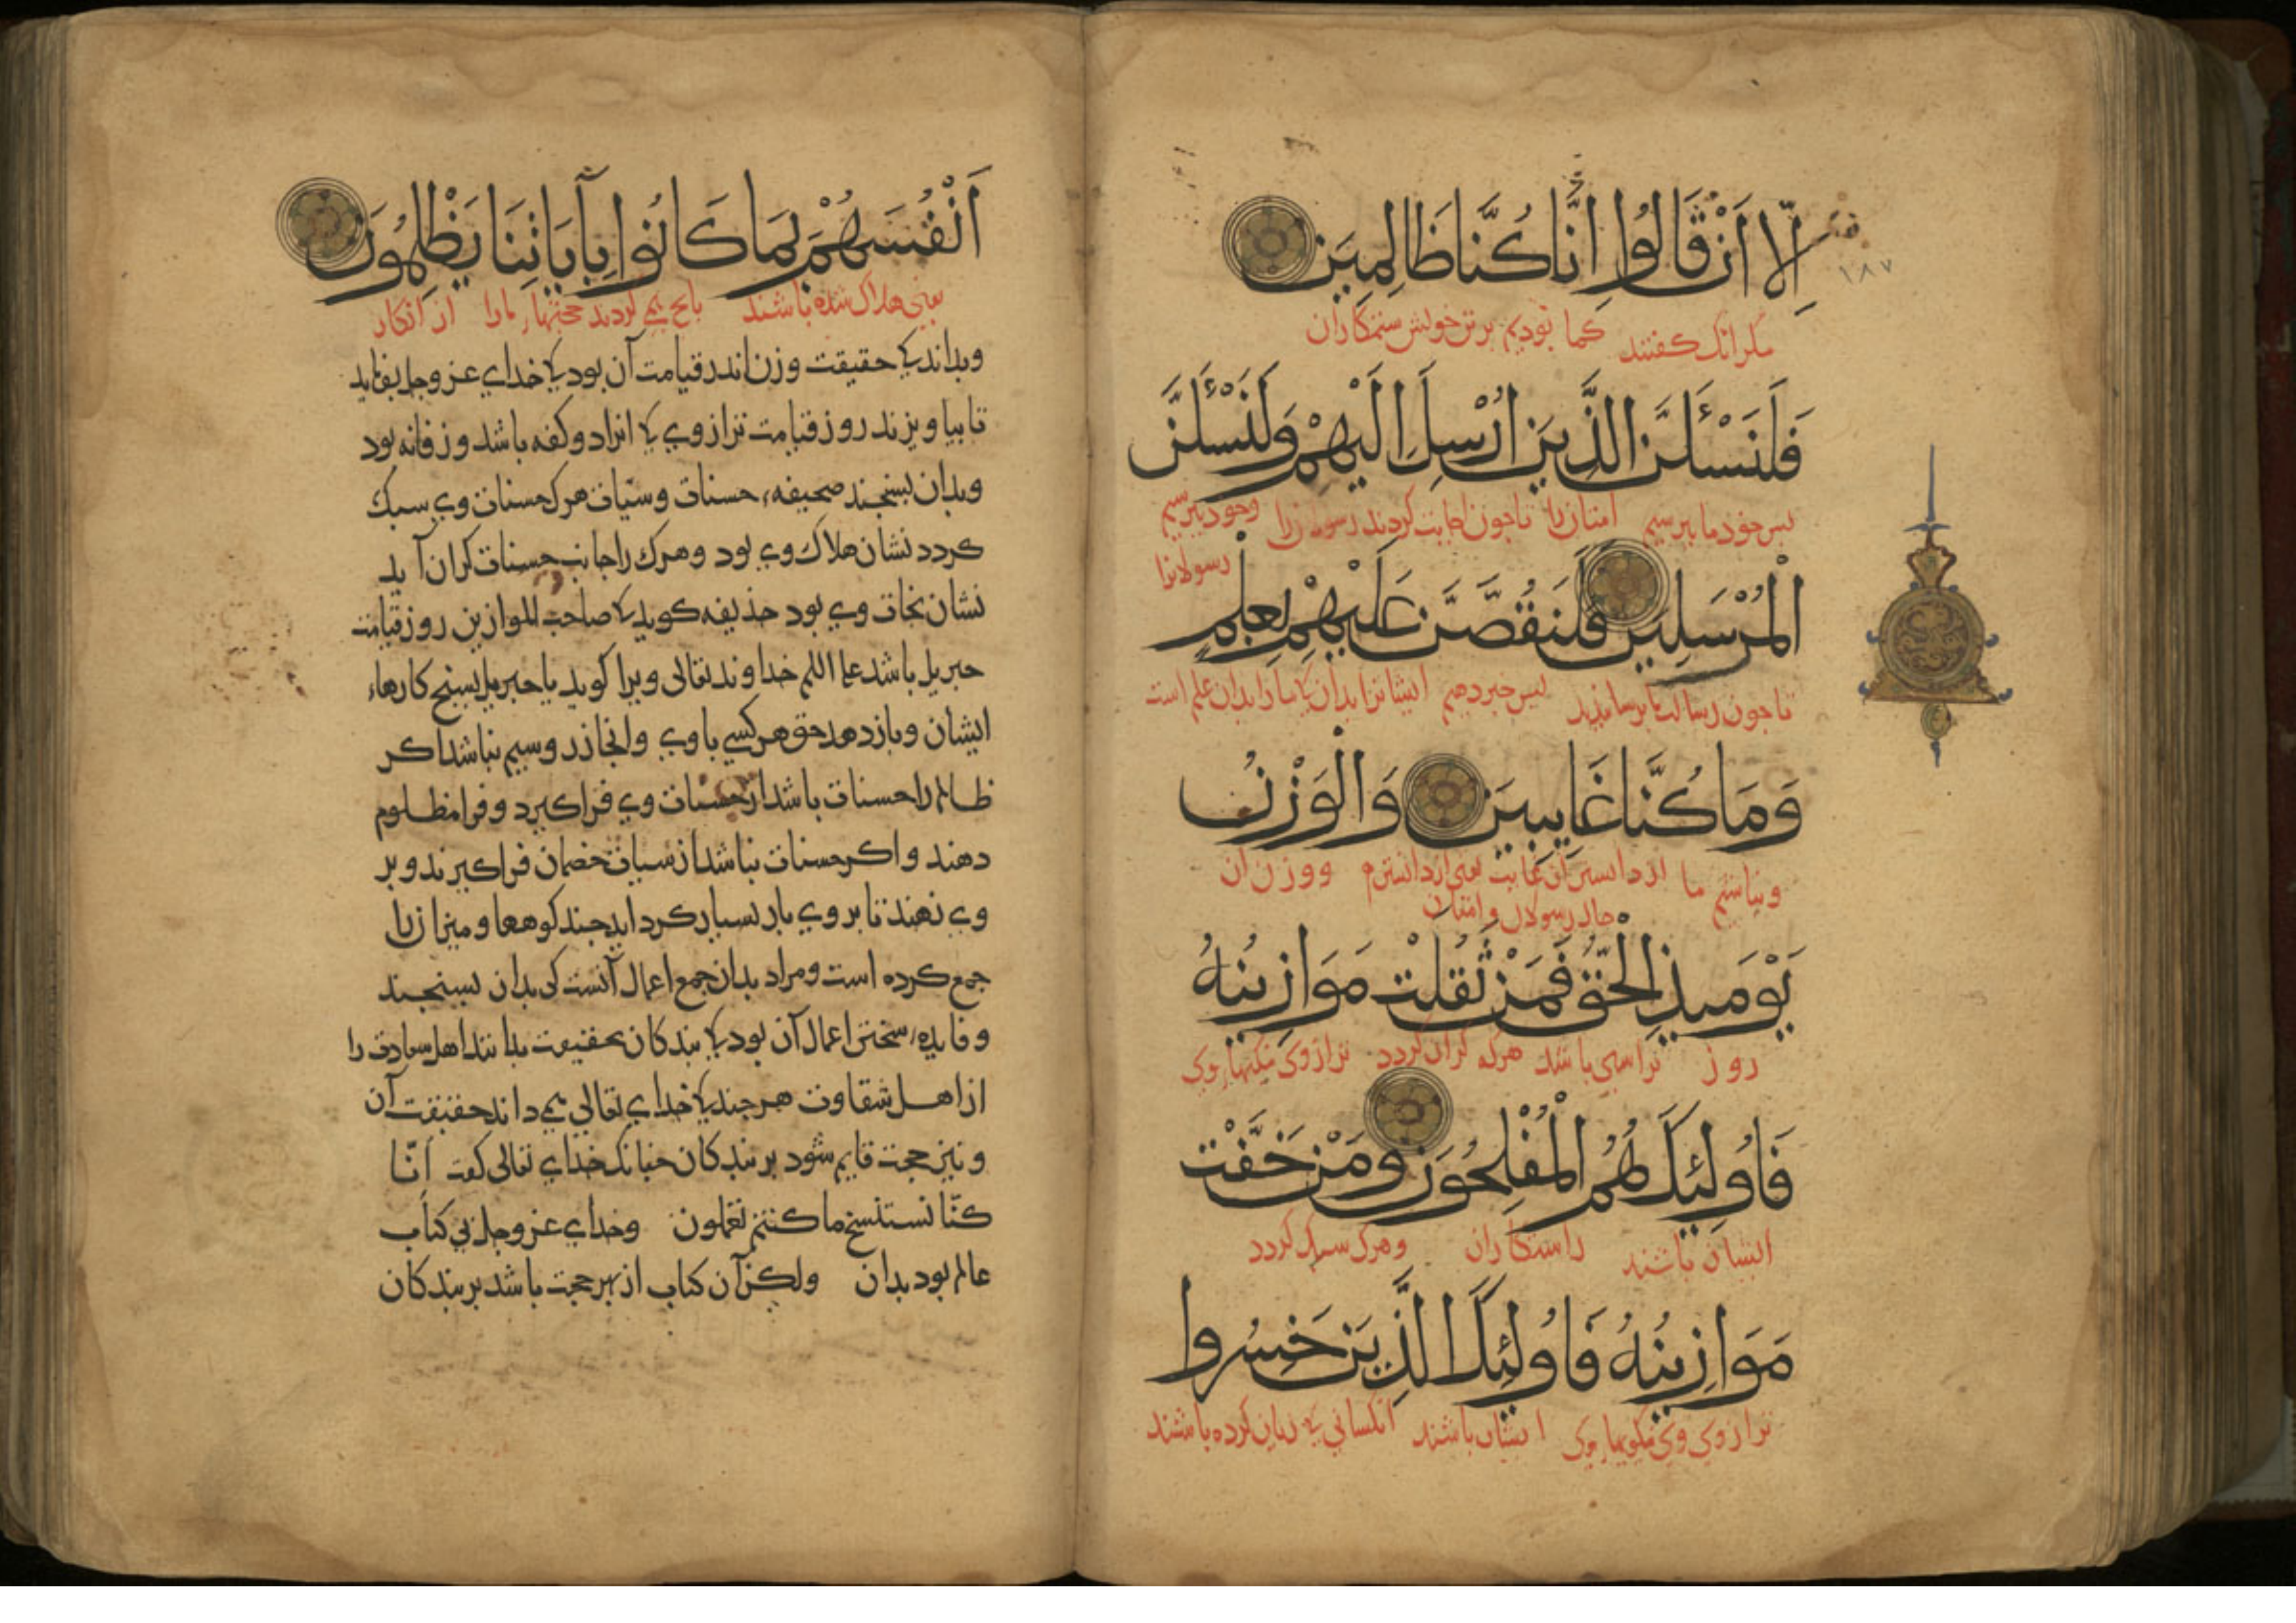 إِلَّا أَنْ قَالُوا إِنَّا كُنَّا ظَالِمِينَ
١٨٧
مكر انك كفتند كما بوديم برتن خويش ستمكاران
فَلَنَسْئَلَنَّ الَّذِينَ أُرْسِلَ إِلَيْهِمْ وَلَنَسْئَلَنَّ
بس خود ما ببرسيم امتان را تا چون اجابت كردند رسولان را وخود ببرسيم
رسولانرا
الْمُرْسَلِينَ فَلَنَقُصَّنَّ عَلَيْهِمْ بِعِلْمٍ
تا جون رسالت ما برسانيديد بس خبر دهيم ايشانرا بدان كا ما را بدان علم است
وَمَا كُنَّا غَايِبِينَ وَالْوَزْنُ
ونباشيم ما از دانستن آن غايب ووزن آن
حال رسولان وامتان
يَوْمَيِذٍ الْحَقُّ فَمَنْ ثَقُلَتْ مَوَازِينُهُ
روز براستى باشد هركه كران كردد ترازوى نيكيهاء وى
فَأُولَئِكَ هُمُ الْمُفْلِحُونَ وَمَنْ خَفَّتْ
ايشان باشند رستكاران وهرك سبك كردد
مَوَازِينُهُ فَأُولَئِكَ الَّذِينَ خَسِرُوا
ترازوى نيكويهاء وى ايشان باشند انكسانى كا زيان كرده باشند
أَنْفُسَهُمْ بِمَا كَانُوا بِآيَاتِنَا يَظْلِمُونَ
يعنى هلاك شده باشند بانج مى كردند حجتهاء ما را از انكار
وبدانديكا حقيقت وزن اندر قيامت آن بود كا خداى عز وجل بفرمايد
تا بياويزند روز قيامت ترازوى كا انرا دو كفه باشد وزفانه بود
وبدان بسنجند صحيفهء حسنات وسيّات هرك حسنات وى سبك
كردد نشان هلاك وى بود وهرك را جانب حسنات كران آيد
نشان نجات وى بود حذيفه كويد كا صاحب الموازين روز قيامت
جبريل باشد خداوند تعالى ويرا كويد يا جبريل بسنج كارهاء
ايشان وباز دهد حق هر كسى با وى وانجا زر وسيم نباشد اكر
ظالم را حسنات باشد از حسنات وى فرا كيرد وفرا مظلوم
دهند واكر حسنات نباشد از سيات خصمان فرا كيرند وبر
وى نهند تا بر وى بار بسيار كرد ايد چند كوهها وميزان را
جمع كرده است ومراد بدان جمع اعمال آنست كى بدان بسنجند
وفايدهء سختن اعمال آن بود كا بندكان بحقيقت بدانند اهل سعادت را
از اهل شقاوت هر چند كا خداى تعالى مى داند حقيقت آن
ونيز حجت قايم شود بر بندكان چنانك خداى تعالى كفت إنّا
كنّا نستنسخ ما كنتم تعملون وخداى عز وجل بى كتاب
عالم بود بدان ولكن آن كتاب از بهر حجت باشد بر بندكان